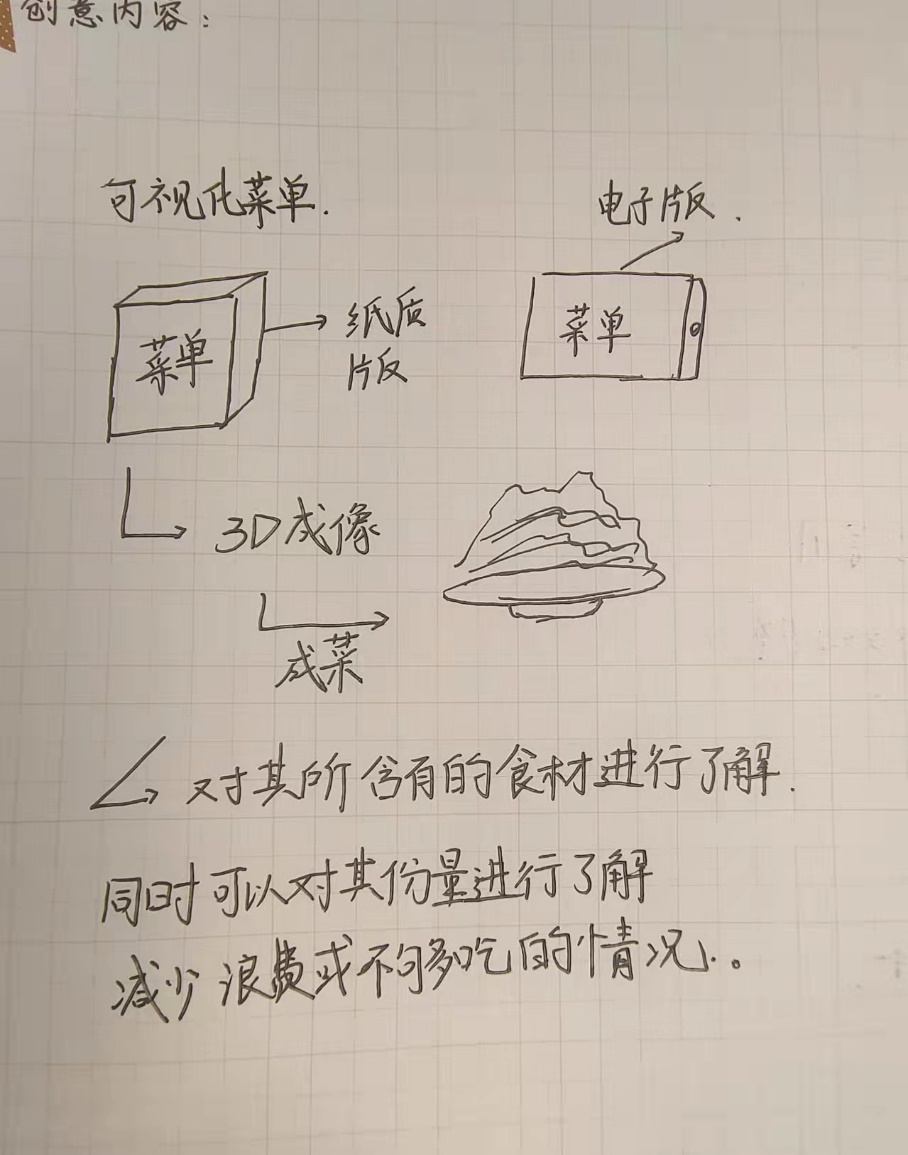 创意内容：
可视化菜单.
电子版.
菜单
纸质
版
菜单
3D成像
成菜
对其所含有的食材进行了解.
同时可以对其份量进行了解
减少浪费或不够吃的情况.。